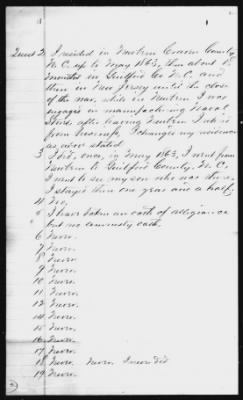 Quest 2. I resided in Newbern Craven County
N.C. up to May 1863, then about 18
months in Guilford Co N.C. and
then in New Jersey until the close
of the war, while in Newbern I was
engaged in manufacturing Naval
Stores, after leaving Newbern I
from business, I changed my residence
as above stated
3 I did, once, in May 1863, I went from
Newbern to Guilford County, N.C.
I went to see my son who was there,
I stayed there one year and a half,
4 No,
5 I have taken an oath of allegiance
but no amnesty oath.
6 Never.
7 Never.
8 Never.
9 Never.
10 Never.
11 Never.
12 Never.
14 Never.
15 Never.
16 Never.
17 Never.
18 Never. Never I never did
19 Never.